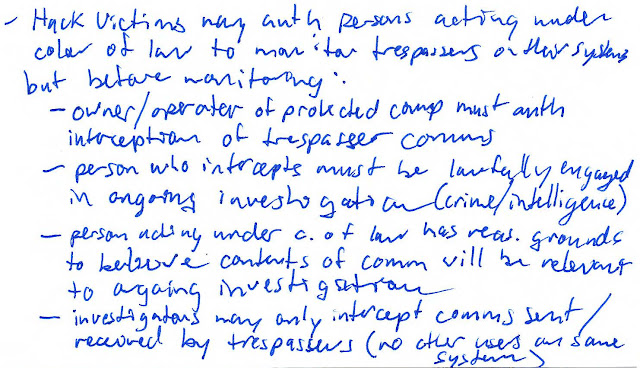 - Hack victims may auth persons acting under
color of law to monitor trespassers on their systems
but before monitoring:
- owner/operator of protected comp must auth
interception of trespasser comms
- person who intercepts must be lawfully engaged
in ongoing investigation (crime/intelligence)
- person acting under c. of law has reas. grounds
to believe contents of comm will be relevant
to ongoing investigation
- investigators may only intercept comms sent/
received by trespassers (no other users on same
system)